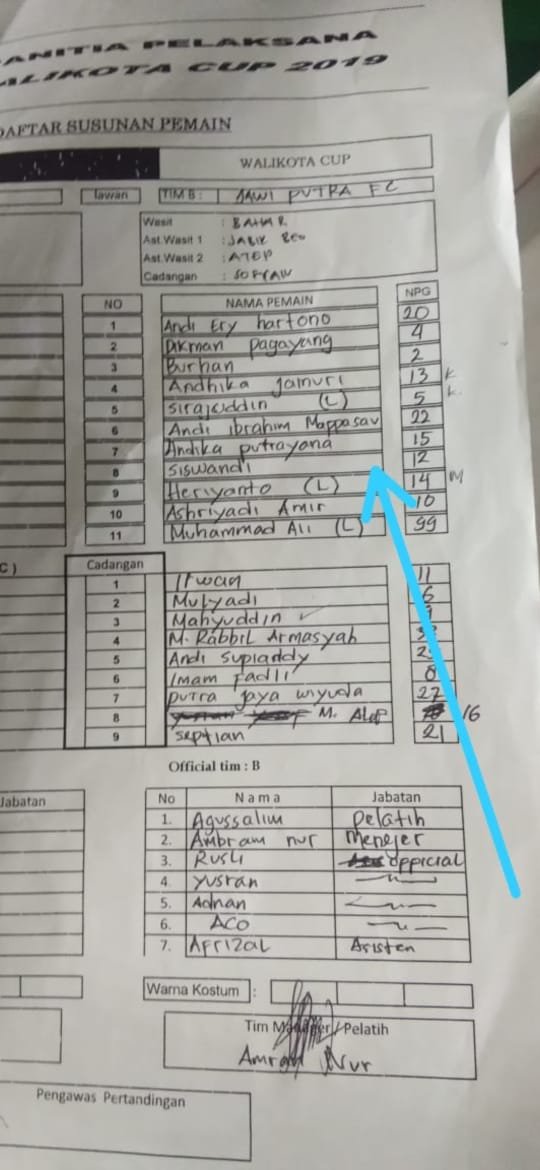 ANITIA PELAKSANA
ALIKOTA CUP 2019
DAFTAR SUSUNAN PEMAIN
WALIKOTA CUP
lawan TIM B : SAWI PUTRA FC
Wasit : BAHAR
Ast.Wasit 1 :
Ast.Wasit 2 : ATEP
Cadangan :
NO NAMA PEMAIN NPG
1 Andi Ery hartono 20
2 Dikman pagayang 4
3 Burhan 2
4 Andhika Jainuri 13 K
5 Sirajuddin (L) 5 K.
6 Andi ibrahim Mappasav 22
7 Andika putrayana 15
8 Siswandi 12
9 Heriyanto (L) 14 M
10 Ashriyadi Amir 10
11 Muhammad Ali (L) 99
C) Cadangan
1 Irwan 11
2 Mulyadi 6
3 Mahyuddin ✓
4 M. Rabbil Armasyah
5 Andi Supiaddy
6 Imam Fadli 8
7 putra jaya wiyuda 27
8 M. Alep 16
9 Septian 21
Official tim : B
Jabatan No Nama Jabatan
1. Agussalim pelatih
2. Ambram nur Menejer
3. Rusli opficial
4. Yusran
5. Adnan
6. ACO
7. Afrizal Asisten
Warna Kostum :
Tim Manager / Pelatih
Amran Nur
Pengawas Pertandingan